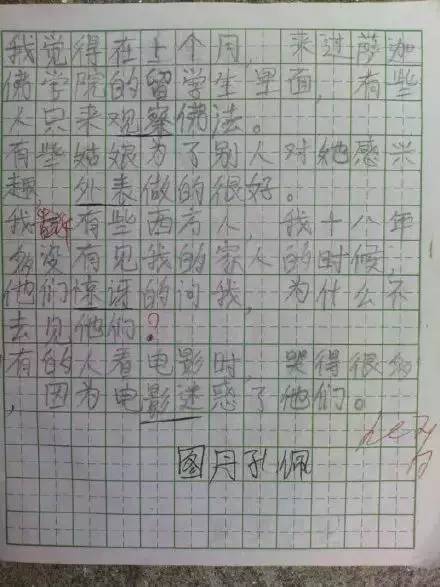 我觉得在十个月,来过萨迦
佛学院的留学生里面,有些
人只来观察佛法。
有些姑娘为了别人对她感兴
趣,外表做的很好。
我 有些西方人,我十八年
多没有见我的家人的时候,
他们惊讶的问我,为什么不
去见他们?
有的人看电影时,哭得很多
,因为电影迷惑了他们。
图丹孔佩